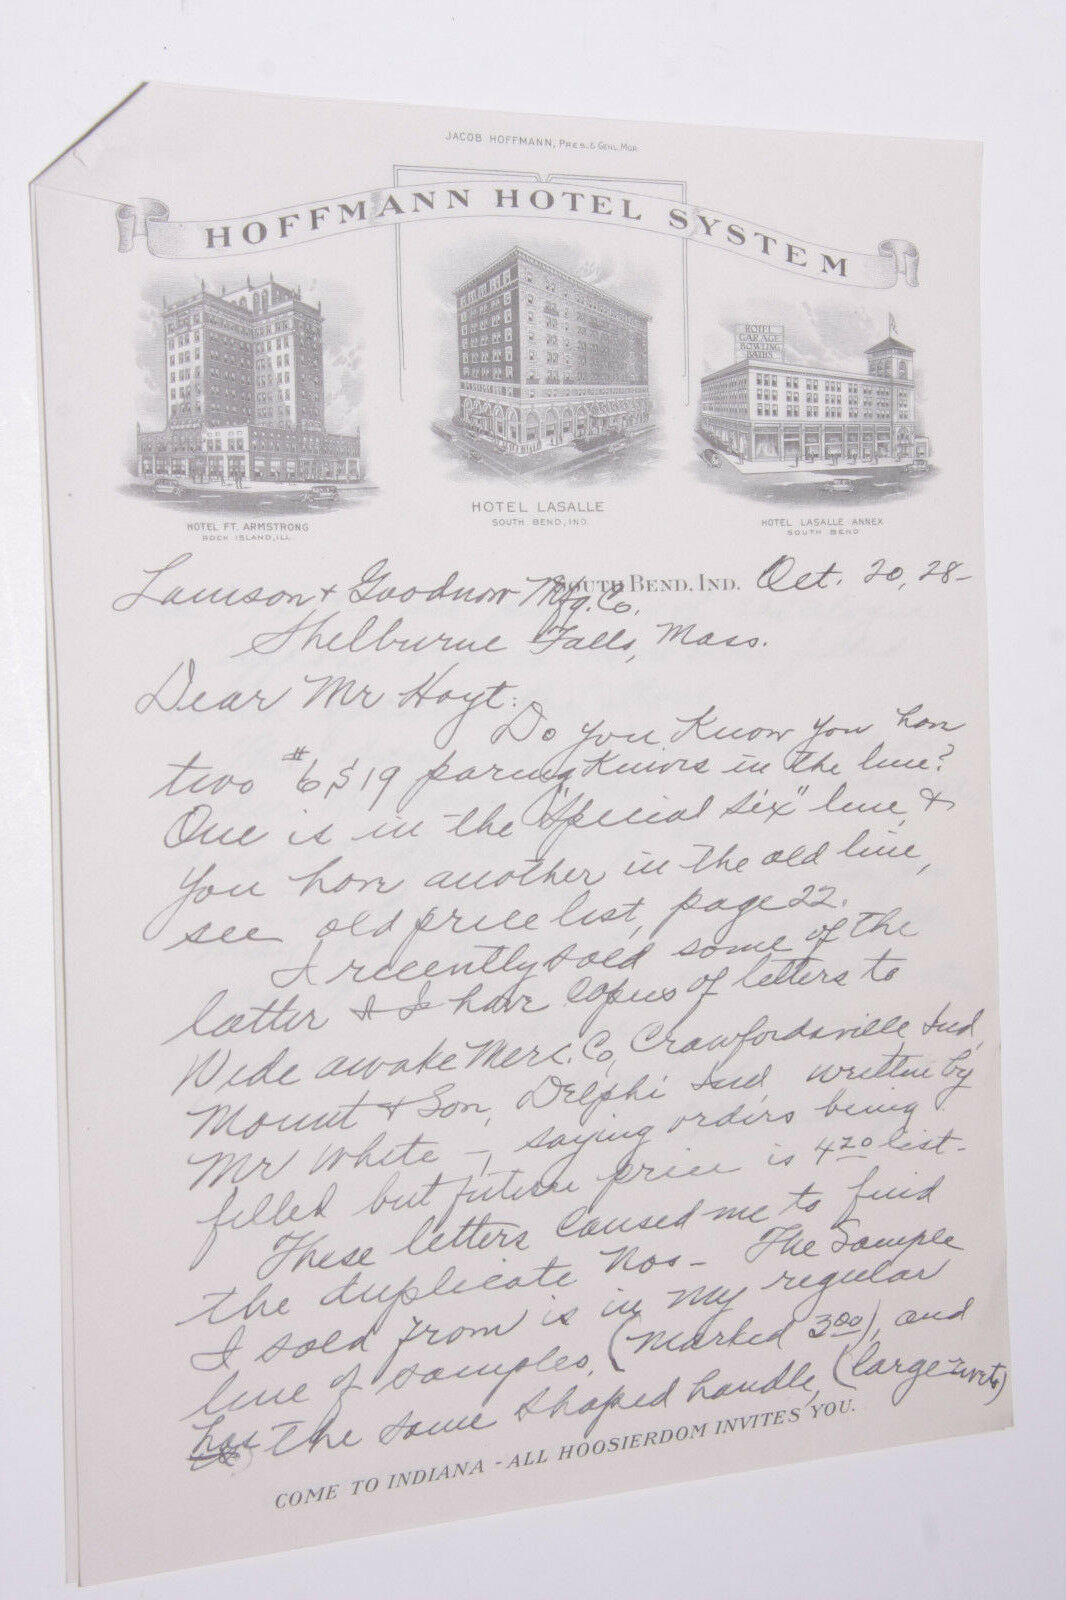 JACOB HOFFMANN, PRES. & GENL. MGR.
HOFFMANN HOTEL SYSTEM
HOTEL
GARAGE
BOWLING
BATHS
HOTEL FT. ARMSTRONG
ROCK ISLAND, ILL.
HOTEL LASALLE
SOUTH BEND, IND.
HOTEL LASALLE ANNEX
SOUTH BEND
SOUTH BEND, IND. Oct. 20, 28-
Lamson & Goodnow Mfg. Co,
Shelburne Falls, Mass.
Dear Mr Hoyt:
Do you know you have
two #6519 paring knives in the line?
One is in the "Special Six" line, &
you have another in the old line,
see old price list, page 22.
I recently sold some of the
latter & I have copies of letters to
Wide awake Merc. Co, Crawfordsville Ind,
Mount & Son, Delphi Ind, written by
Mr White -, saying orders being
filled but future price is 4.20 list-
These letters caused me to find
the duplicate Nos - The sample
I sold from is in my regular
line of samples, (marked 3.00), and
has the same shaped handle, (large rivets)
COME TO INDIANA - ALL HOOSIERDOM INVITES YOU.